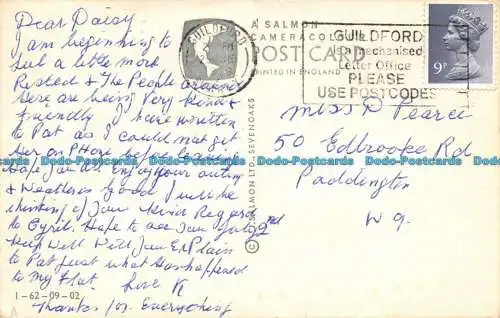 Dear Daisy
I am beginning to
feel a little more
Rested & The People around
here are being Very kind &
friendly I have written
to Pat as I could not get
her on Phone before
Hope you all Enjoy your outing
& Weather is Good I will be
thinking of You
to Cyril. Hope to see you July 2nd
Keep Well Will you Explain
to Pat just what has happened
to My flat. love K
Thanks for Everything
1-62-09-02
A SALMON
CAMERACOLOUR
POST CARD
PRINTED IN ENGLAND
© J. SALMON LTD. SEVENOAKS
GUILDFORD
GUILDFORD
is a mechanised
Letter Office
PLEASE
USE POSTCODES
9P
Miss D Pearce
50 Edbrooke Rd
Paddington
W9.
Dodo-Postcards Dodo-Postcards Dodo-Postcards Dodo-Postcards
Dodo-Postcards Dodo-Postcards Dodo-Postcards Dodo-Postcards
Dodo-Postcards Dodo-Postcards Dodo-Postcards Dodo-Postcards